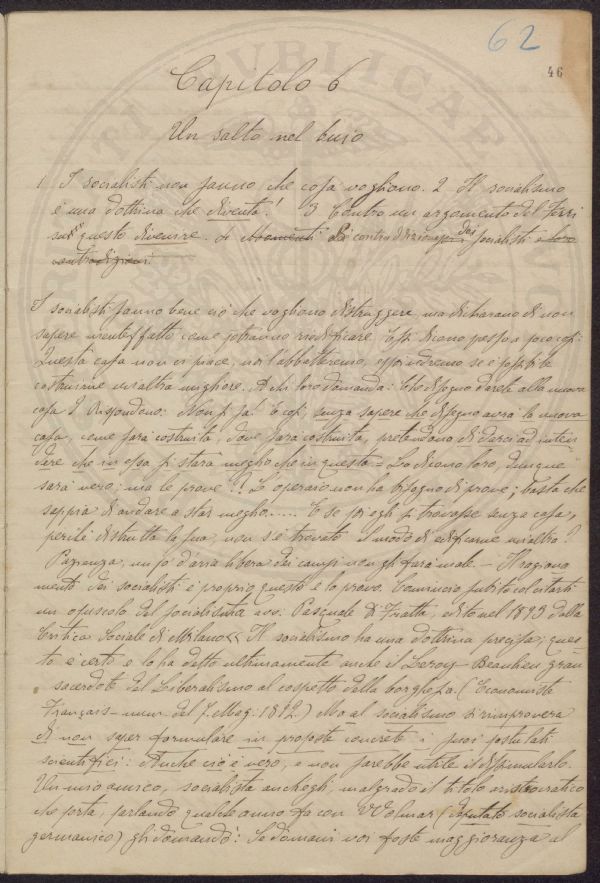 62
46
Capitolo 6
Un salto nel buio
1 I socialisti non sanno che cosa vogliono. 2 Il socialismo
è una dottrina che diventa! 3 Contro un argomento del Ferri
questo divenire. 4 contraddizioni dei socialisti e loro
contradizioni.
I socialisti sanno bene ciò che vogliono distruggere, ma dichiarano di non
sapere menteffatto come potranno riedificare. Essi dicono presso a poco così:
Questa casa non ci piace, noi l'abbatteremo, eppoi vedremo se è possibile
costruirne un'altra migliore. A chi loro domanda: Che disegno darete alla nuova
casa? Rispondono: Non si sa! E così, senza sapere che disegno avrà la nuova
casa, come sarà costruita, dove sarà costruita, pretendono di darci ad inten-
dere che in essa si starà meglio che in questa. Lo dicono loro, dunque
sarà vero; ma le prove? L'operaio non ha bisogno di prove; basta che
sappia di andare a star meglio..... E se poi egli si trovasse senza casa,
perchè distrutta la sua, non s'è trovato il modo di edificarne un'altra?
Pazienza, un po' d'aria libera dei campi non gli farà male. — Il ragiona
mento dei socialisti è proprio questo e lo provo. Comincio subito col citarti
un opuscolo del socialista avv. Pasquale di Fratta, edito nel 1893 dalla
Critica Sociale di Milano « Il socialismo ha una dottrina precisa; ques-
to è certo e lo ha detto ultimamente anche il Leroy-Beaulieu gran
sacerdote del Liberalismo al cospetto della borghesia. (Economiste
Français - num. del 7. Mag. 1892) Ma al socialismo si rimprovera
di non saper formulare in proposte concrete i suoi postulati
scientifici: Anche ciò è vero, e non sarebbe utile il dissimularlo.
Un mio amico, socialista anch'egli, malgrado il titolo aristocratico
che porta, parlando qualche anno fa con Wolmar (deputato socialista
germanico) gli domandò: Se domani voi foste maggioranza al